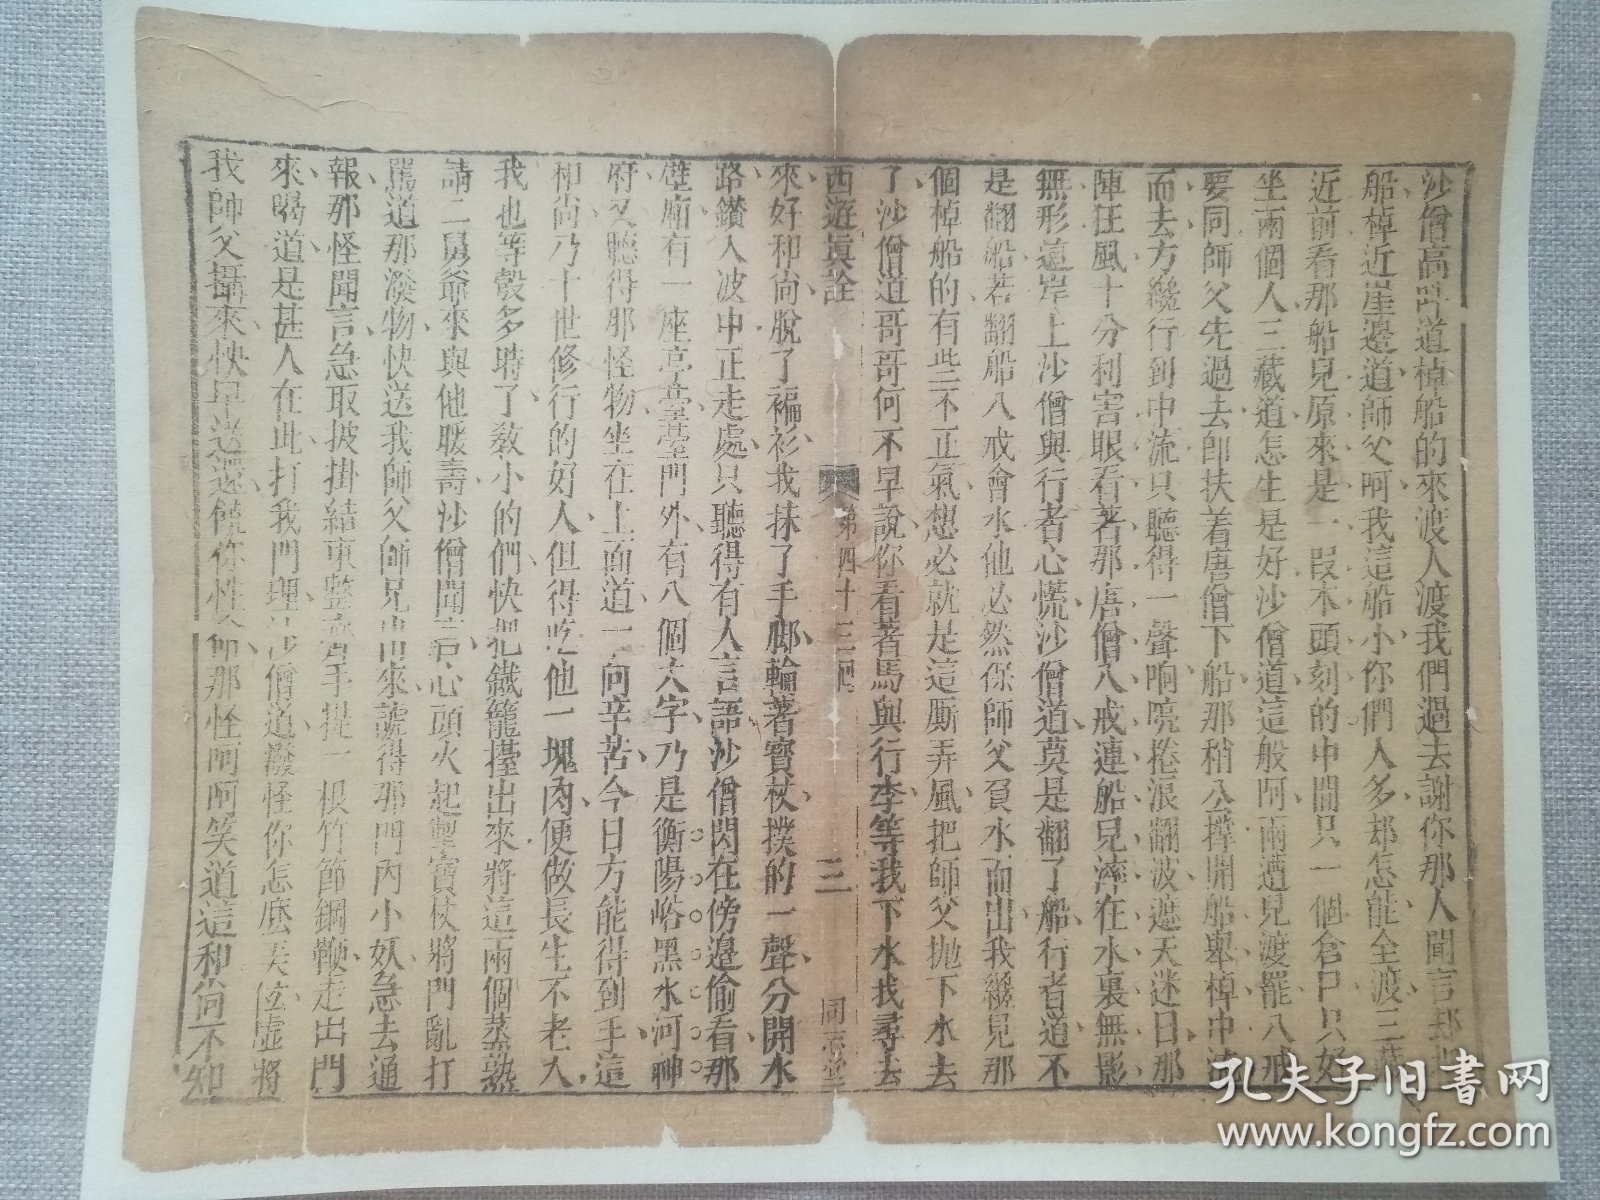 沙僧高叫道棹船的來渡人渡我們過去謝你那人聞言却把
船棹近崖邊道師父呵我這船小你們人多却怎能全渡三藏
近前看那船兒原來是一段木頭刻的中間只一個倉口只好
坐兩個人三藏道怎生是好沙僧道這般阿兩遭兒渡罷八戒
要同師父先過去即扶着唐僧下船那稍公撐開船舉棹中流
而去方纔行到中流只聽得一聲响喨捲浪翻波遮天迷日那
陣狂風十分利害眼看著那唐僧八戒連船兒渰在水裏無影
無形這岸上沙僧與行者心慌沙僧道莫是翻了船行者道不
是翻船若翻船八戒會水他必然保師父負水而出我纔見那
個棹船的有些不正氣想必就是這厮弄風把師父拋下水去
了沙僧道哥哥何不早說你看著馬與行李等我下水找尋去
西遊真詮 第四十三回 三 同志堂
來好和尚脫了褊衫我抹了手脚輪著寶杖撲的一聲分開水
路鑽入波中正走處只聽得有人言語沙僧閃在傍邊偷看那
壁廂有一座亭臺臺門外有八個大字乃是衡陽峪黑水河神
府又聽得那怪物坐在上面道一向辛苦今日方能得到手這
和尚乃十世修行的好人但得吃他一塊肉便做長生不老人
我也等彀多時了教小的們快把鐵籠擡出來將這兩個蒸熟
請二舅爺來與他暖壽沙僧聞言心頭火起掣寶杖將門亂打
罵道那潑物快送我師父師兄出來諕得那門內小妖急去通
報那怪聞言急取披掛結束整齊手提一根竹節鋼鞭走出門
來喝道是甚人在此打我門哩沙僧道潑怪你怎麽弄玄虛將
我師父攝來快早送還饒你性命那怪呵呵笑道這和尚不知